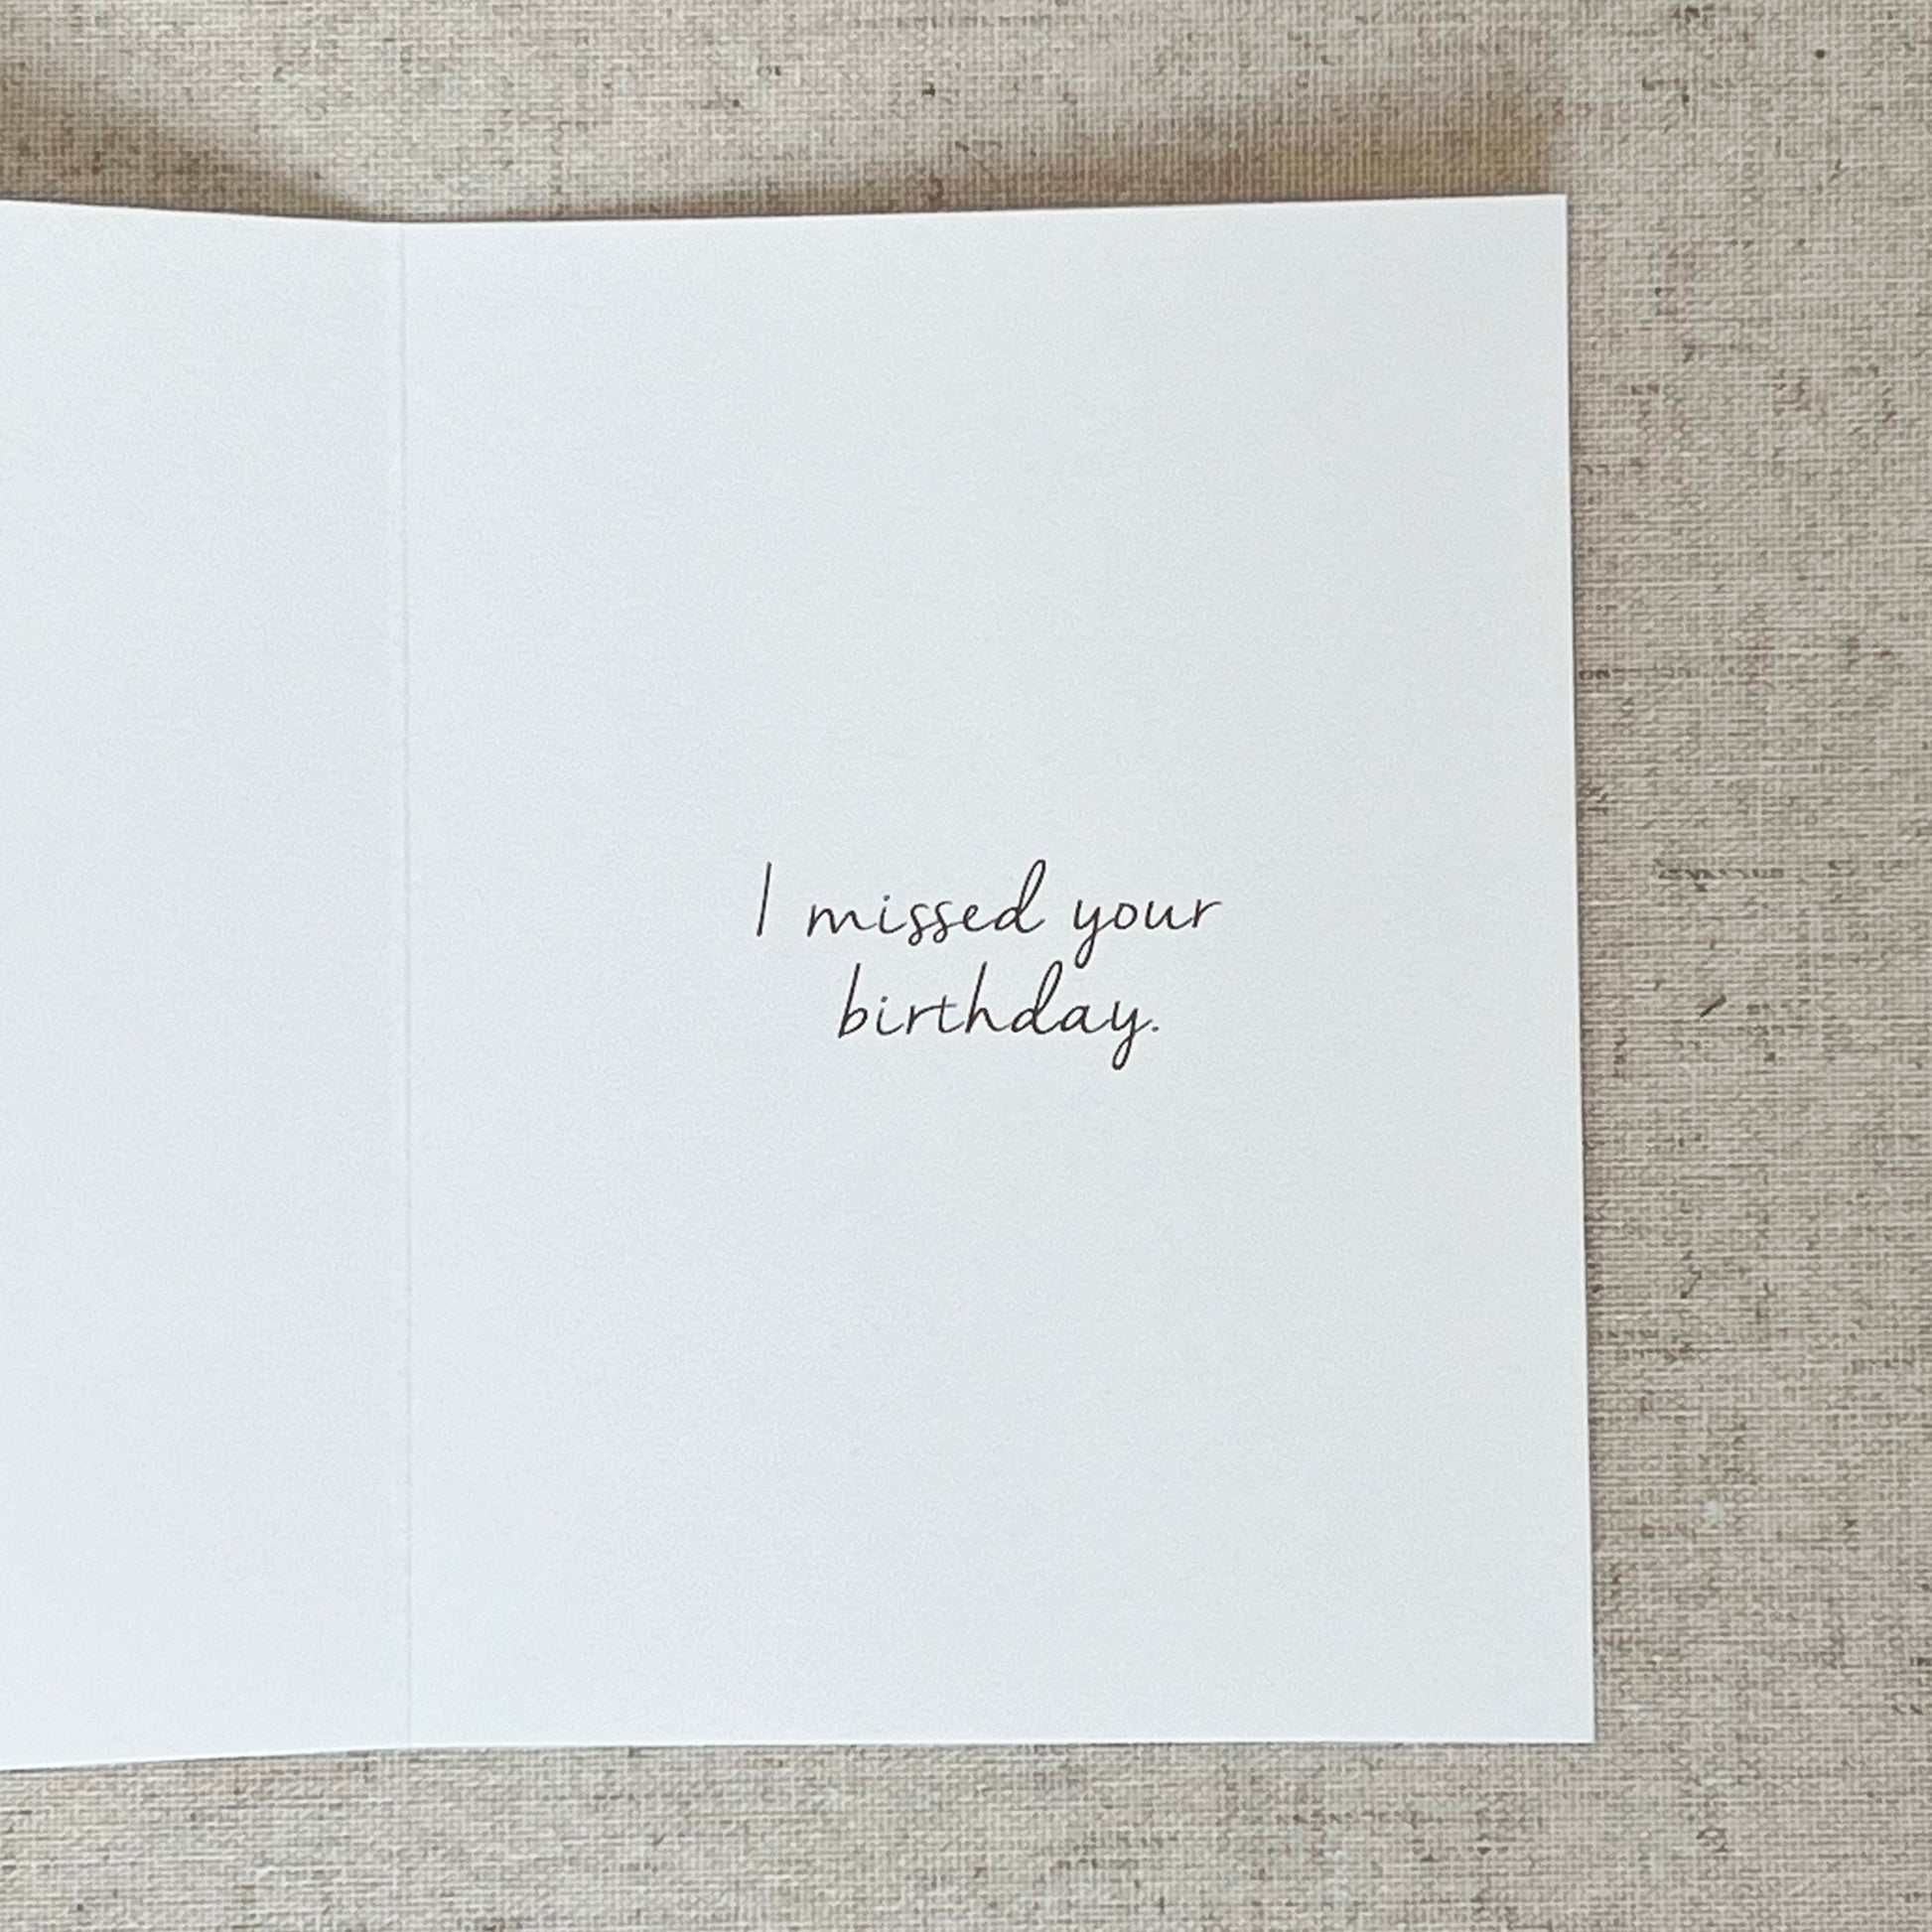 I missed your
birthday.